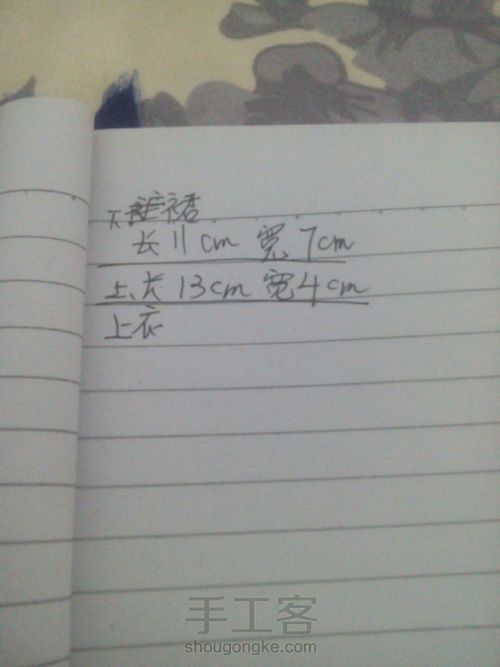 下裙
长11cm 宽7cm
上、长13cm 宽4cm
上衣
手工客
shougongke.com